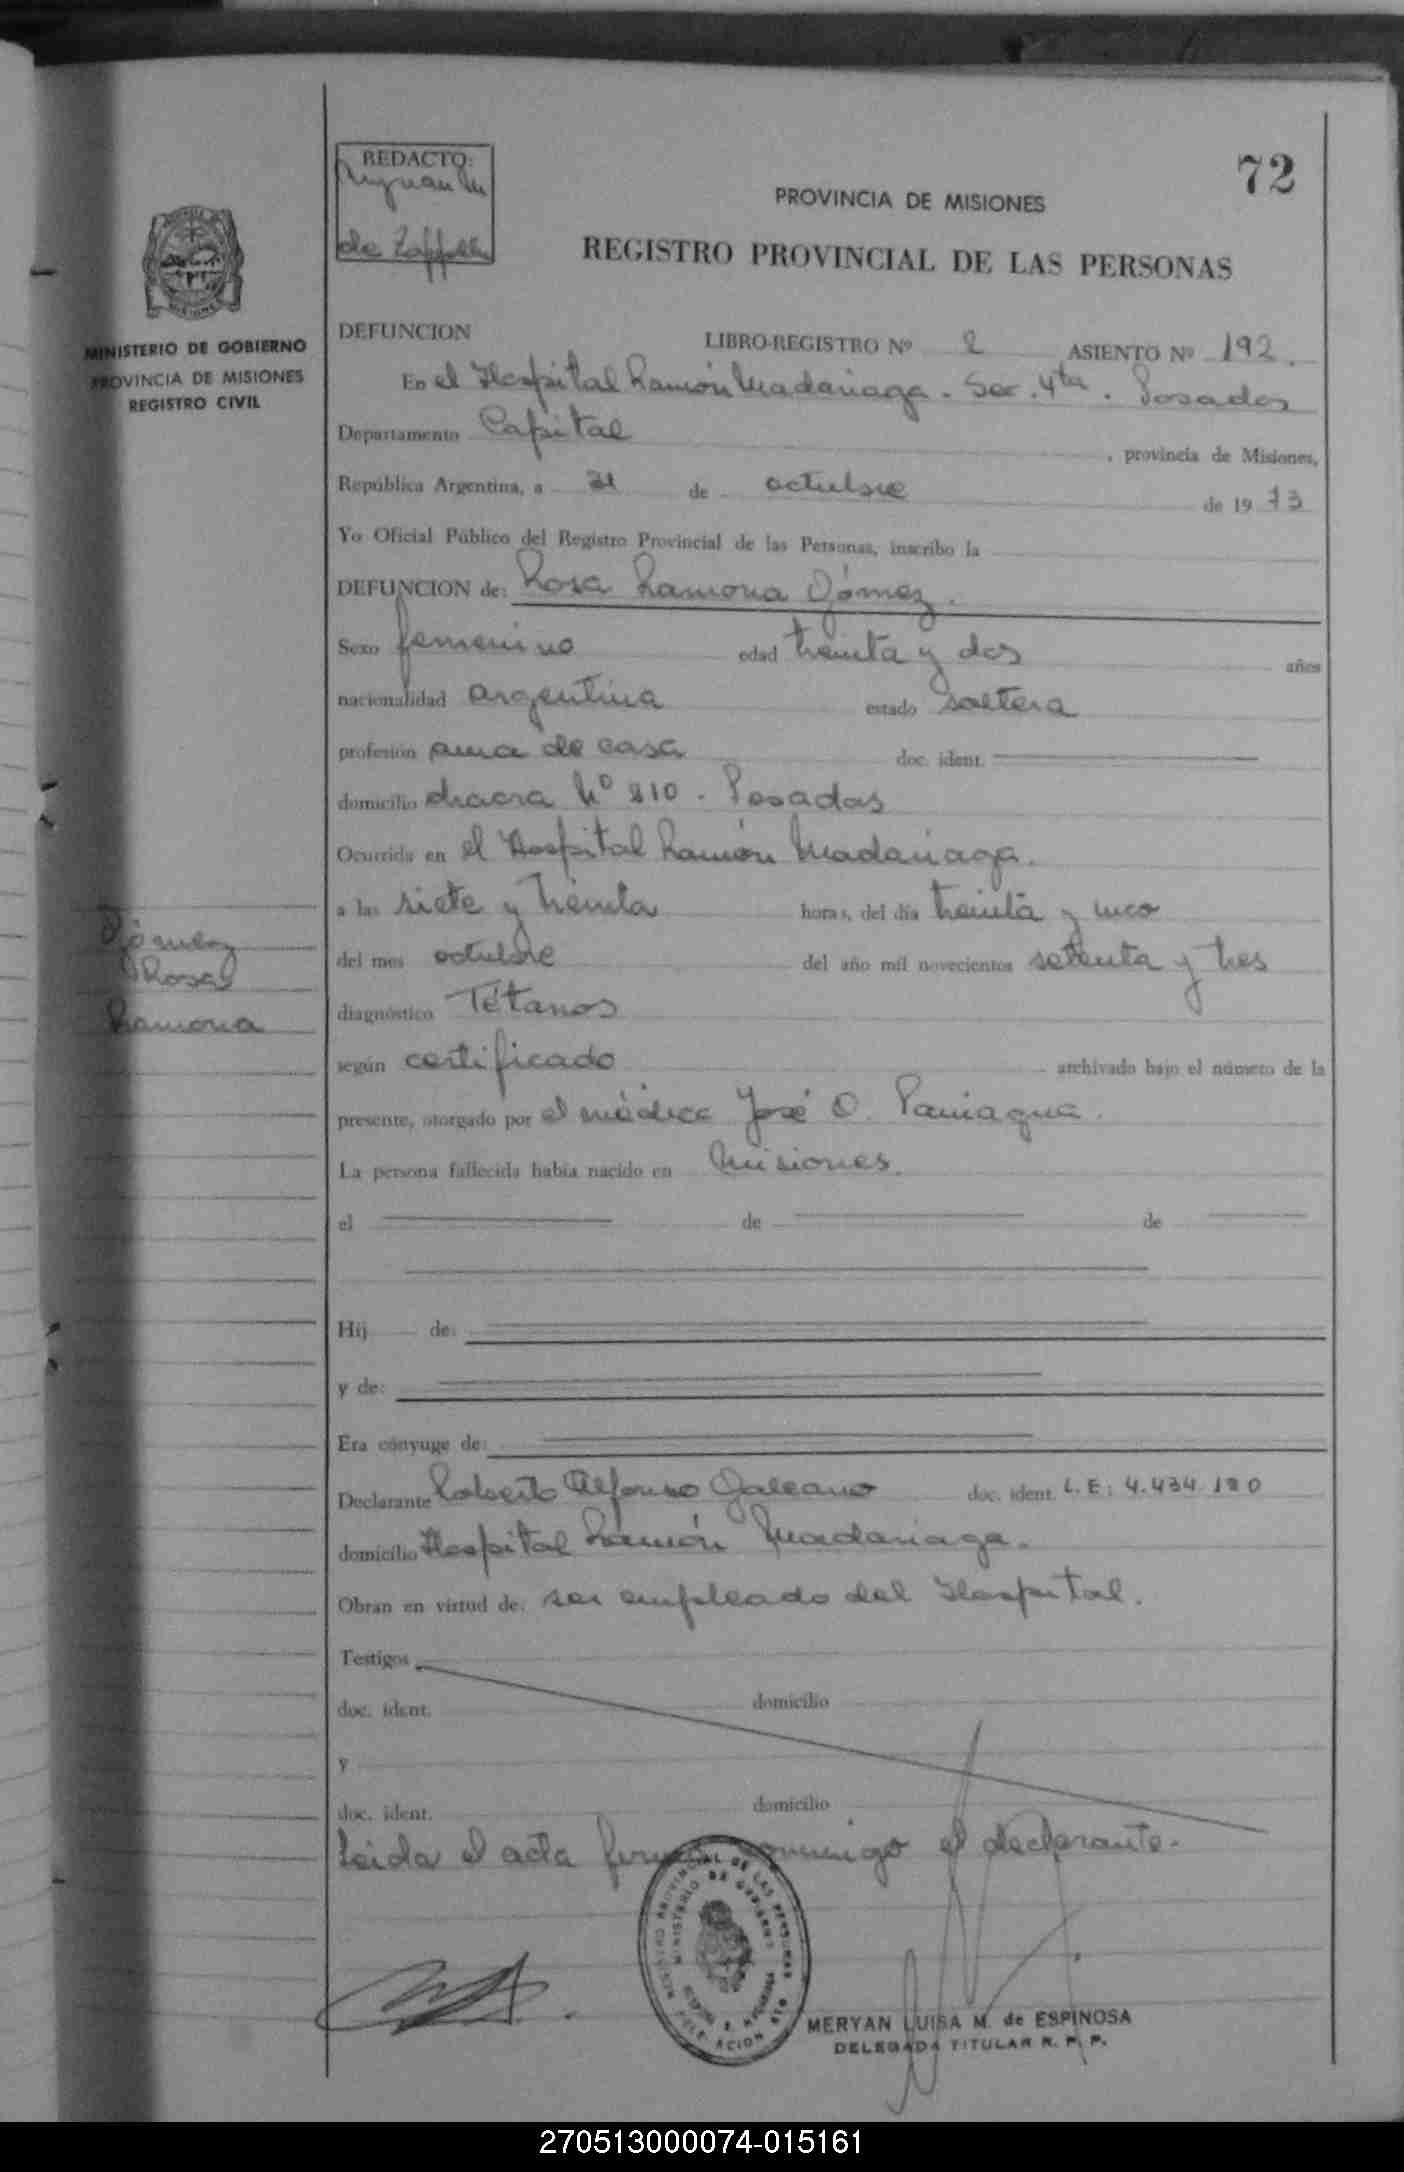 72
REDACTO:
de
PROVINCIA DE MISIONES
REGISTRO PROVINCIAL DE LAS PERSONAS
MINISTERIO DE GOBIERNO
PROVINCIA DE MISIONES
REGISTRO CIVIL
DEFUNCION LIBRO-REGISTRO Nº 2 ASIENTO Nº 192.
En el Hospital Ramón Madariaga. Sec. 4ta. Posadas
Departamento Capital , provincia de Misiones,
República Argentina, a 31 de octubre de 1973
Yo Oficial Público del Registro Provincial de las Personas, inscribo la
DEFUNCION de: Rosa Ramona Gómez.
Sexo femenino edad treinta y dos años
nacionalidad argentina estado soltera
profesión ama de casa doc. ident.
domicilio chacra Nº 210. Posadas
Ocurrida en el Hospital Ramón Madariaga.
a las siete y treinta horas, del día treinta y uno
del mes octubre del año mil novecientos setenta y tres
Gómez
Rosa
Ramona
diagnóstico Tétanos
según certificado archivado bajo el número de la
presente, otorgado por el médico José O. Paniagua.
La persona fallecida había nacido en Misiones.
el de de
Hij de:
y de:
Era cónyuge de:
Declarante Roberto Alfonso Galeano doc. ident. L.E: 4.434.120
domicilio Hospital Ramón Madariaga.
Obran en virtud de: ser empleado del Hospital.
Testigos
doc. ident. domicilio
y
doc. ident. domicilio
Leida el acta firma conmigo el declarante.
MERYAN LUISA M. de ESPINOSA
DELEGADA TITULAR R. P. P.
270513000074-015161